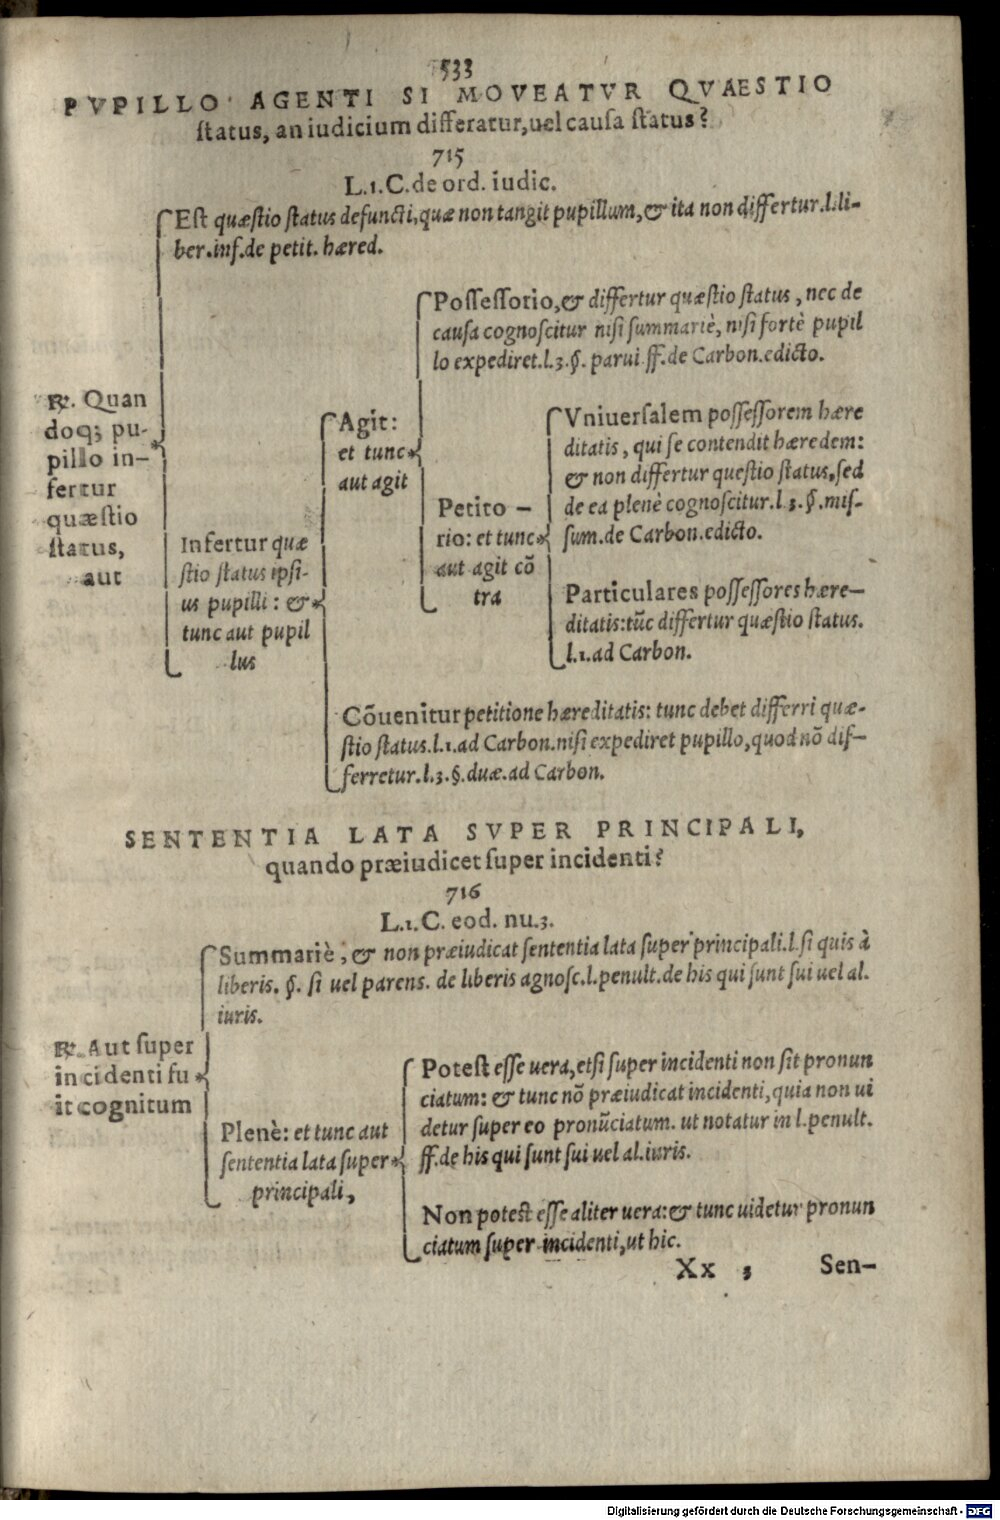 533
PVPILLO AGENTI SI MOVEATVR QVAESTIO
status, an iudicium differatur, uel causa status?
715
L.1.C.de ord. iudic.
Est quæstio status defuncti, quæ non tangit pupillum, & ita non differtur.l.li-
ber.inf.de petit. hæred.
℞. Quan
doq; pu-
pillo in-
fertur
quæstio
status,
aut
Infertur quæ
stio status ipsi-
us pupilli: &
tunc aut pupil
lus
Agit:
et tunc
aut agit
Possessorio, & differtur quæstio status, nec de
causa cognoscitur nisi summariè, nisi fortè pupil
lo expediret.l.3.§. parui ff.de Carbon.edicto.
Petito-
rio: et tunc
aut agit cõ
tra
Vniuersalem possessorem hære
ditatis, qui se contendit hæredem:
& non differtur questio status, sed
de ea plenè cognoscitur.l.3.§.mis-
sum.de Carbon.edicto.
Particulares possessores hære-
ditatis: tũc differtur quæstio status.
l.1.ad Carbon.
Cõuenitur petitione hæreditatis: tunc debet differri quæ-
stio status.l.1.ad Carbon.nisi expediret pupillo, quod nõ dif-
ferretur.l.3.§.duæ.ad Carbon.
SENTENTIA LATA SVPER PRINCIPALI,
quando præiudicet super incidenti?
716
L.1.C. eod. nu.3.
℞. Aut super
incidenti fu
it cognitum
Summariè, & non præiudicat sententia lata super principali.l.si quis à
liberis. §. si uel parens. de liberis agnosc.l.penult.de his qui sunt sui uel al.
iuris.
Plenè: et tunc aut
sententia lata super
principali,
Potest esse uera, etsi super incidenti non sit pronun
ciatum: & tunc nõ præiudicat incidenti, quia non ui
detur super eo pronũciatum. ut notatur in l.penult.
ff.de his qui sunt sui uel al.iuris.
Non potest esse aliter uera: & tunc uidetur pronun
ciatum super incidenti, ut hic.
Xx 3 Sen-
Digitalisierung gefördert durch die Deutsche Forschungsgemeinschaft - DFG